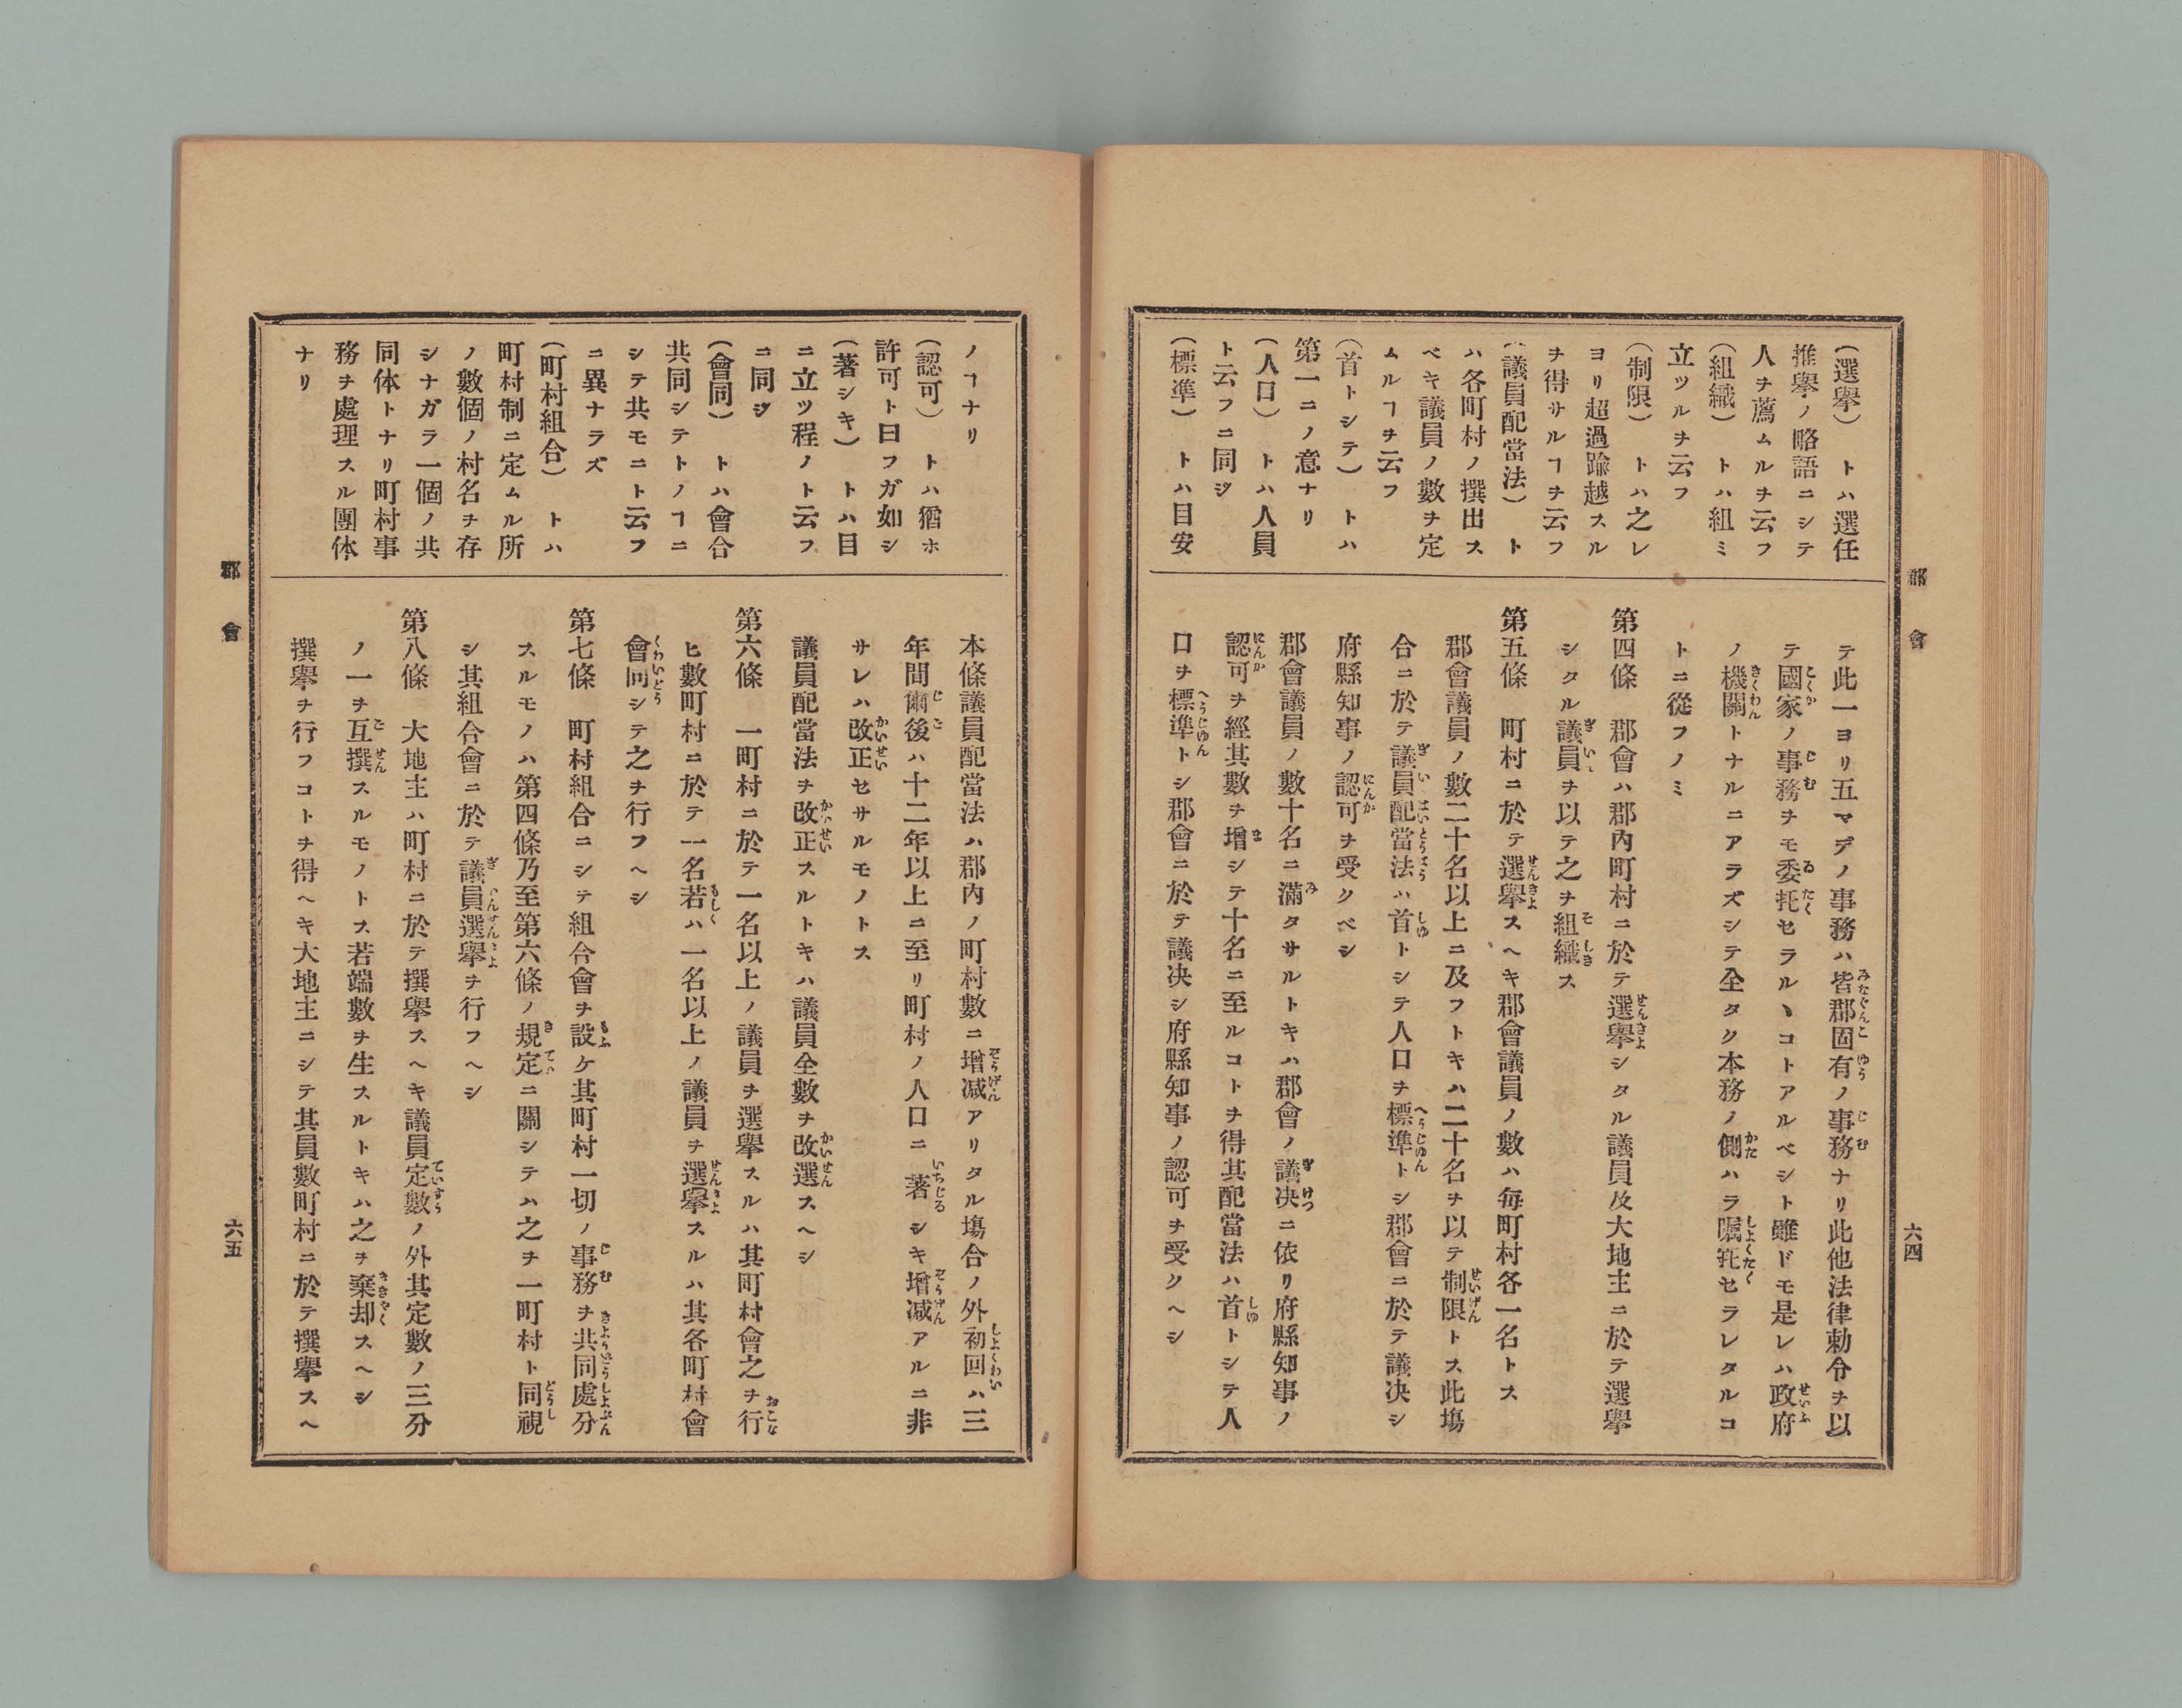 郡會
六四
(選擧)トハ選任
推擧ノ略語ニシテ
人ヲ薦ムルヲ云フ
(組織)トハ組ミ
立ツルヲ云フ
(制限)トハ之レ
ヨリ超過踰越スル
ヲ得サルヿヲ云フ
(議員配當法)ト
ハ各町村ノ撰出ス
ベキ議員ノ數ヲ定
ムルヿヲ云フ
(首トシテ)トハ
第一ニノ意ナリ
(人口)トハ人員
ト云フニ同ジ
(標準)トハ目安
テ此一ヨリ五マデノ事務ハ皆郡固有ノ事務ナリ此他法律勅令ヲ以
テ國家ノ事務ヲモ委托セラルヽコトアルベシト雖ドモ是レハ政府
ノ機關トナルニアラズシテ全タク本務ノ側ハラ囑托セラレタルコ
トニ從フノミ
第四條 郡會ハ郡內町村ニ於テ選擧シタル議員及大地主ニ於テ選擧
シタル議員ヲ以テ之ヲ組織ス
第五條 町村ニ於テ選擧スヘキ郡會議員ノ數ハ每町村各一名トス
郡會議員ノ數二十名以上ニ及フトキハ二十名ヲ以テ制限トス此塲
合ニ於テ議員配當法ハ首トシテ人口ヲ標準トシ郡會ニ於テ議决シ
府縣知事ノ認可ヲ受クベシ
郡會議員ノ數十名ニ滿タサルトキハ郡會ノ議决ニ依リ府縣知事ノ
認可ヲ經其數ヲ增シテ十名ニ至ルコトヲ得其配當法ハ首トシテ人
口ヲ標準トシ郡會ニ於テ議决シ府縣知事ノ認可ヲ受クヘシ
ノヿナリ
(認可)トハ猶ホ
許可ト曰フガ如シ
(著シキ)トハ目
ニ立ツ程ノト云フ
ニ同ジ
(會同)トハ會合
共同シテトノヿニ
シテ共モニト云フ
ニ異ナラズ
(町村組合)トハ
町村制ニ定ムル所
ノ數個ノ村名ヲ存
シナガラ一個ノ共
同体トナリ町村事
務ヲ處理スル團体
ナリ
本條議員配當法ハ郡內ノ町村數ニ增減アリタル塲合ノ外初回ハ三
年間爾後ハ十二年以上ニ至リ町村ノ人口ニ著シキ增減アルニ非
サレハ改正セサルモノトス
議員配當法ヲ改正スルトキハ議員全數ヲ改選スヘシ
第六條 一町村ニ於テ一名以上ノ議員ヲ選擧スルハ其町村會之ヲ行
ヒ數町村ニ於テ一名若ハ一名以上ノ議員ヲ選擧スルハ其各町村會
會同シテ之ヲ行フヘシ
第七條 町村組合ニシテ組合會ヲ設ケ其町村一切ノ事務ヲ共同處分
スルモノハ第四條乃至第六條ノ規定ニ關シテハ之ヲ一町村ト同視
シ其組合會ニ於テ議員選擧ヲ行フヘシ
第八條 大地主ハ町村ニ於テ撰擧スヘキ議員定數ノ外其定數ノ三分
ノ一ヲ互撰スルモノトス若端數ヲ生スルトキハ之ヲ棄却スヘシ
撰擧ヲ行フコトヲ得ヘキ大地主ニシテ其員數町村ニ於テ撰擧スヘ
郡會
六五